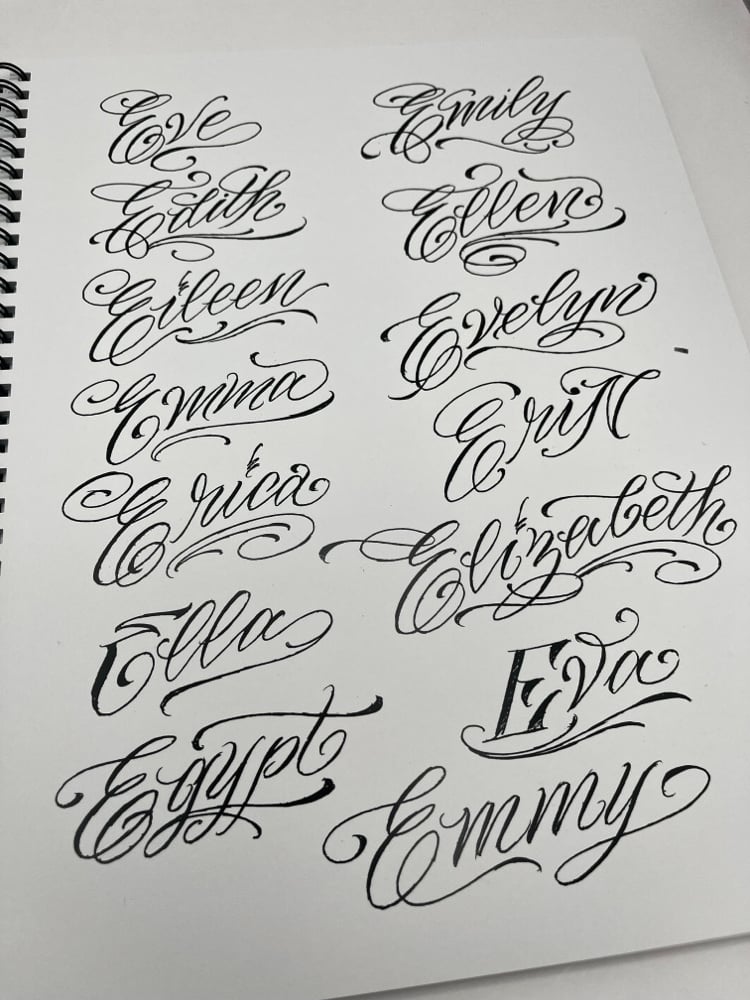 Eve
Emily
Edith
Ellen
Eileen
Evelyn
Emma
EriN
Erica
Elizabeth
Ella
Eva
Egypt
Emmy